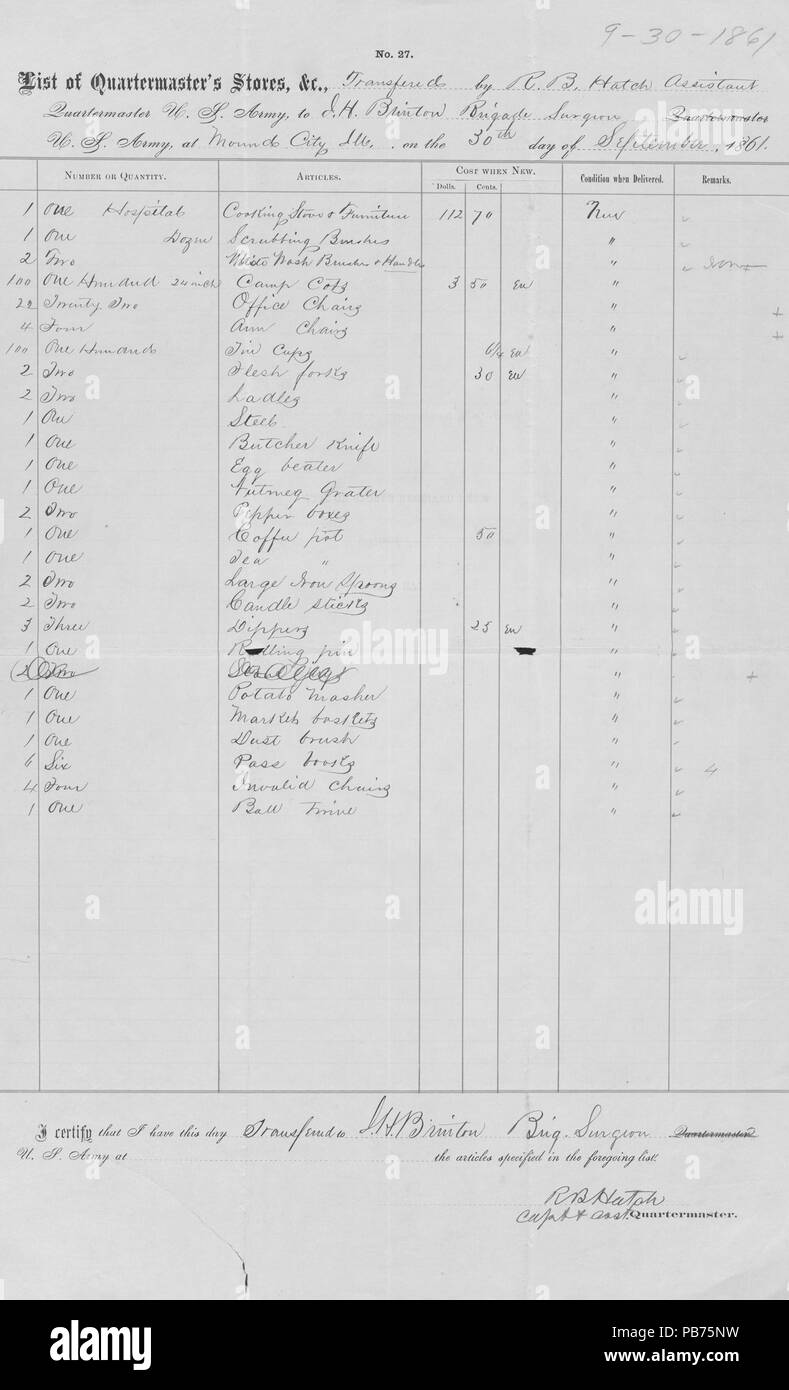 9-30-1861
No. 27.
List of Quartermaster's Stores, &c., Transfered by R. B. Hatch Assistant
Quartermaster U. S. Army, to J. H. Brinton Brigade Surgeon Quartermaster
U. S. Army, at Mound City Ills. on the 30th day of September, 1861.
Number or Quantity. Articles. Cost when New. Condition when Delivered. Remarks.
Dolls. Cents.
1 One Hospital Cooking Stove & Furniture 112 70 New
1 One Dozen Scrubbing Brushes "
2 Two White Wash Brushes & Handles "
100 One Hundred 24 inch Camp Cots 3 50 Ea "
22 Twenty Two Office Chairs " +
4 Four Arm Chairs " +
100 One Hundred Tin Cups 6/4 Ea "
2 Two Flesh forks 30 Ea "
2 Two Ladles "
1 One Steel "
1 One Butcher Knife "
1 One Egg beater "
1 One Nutmeg Grater "
2 Two Pepper boxes "
1 One Coffee pot 50 "
1 One Tea " "
2 Two Large Iron Spoons "
2 Two Candle sticks "
3 Three Dippers 25 Ea "
1 One Rolling pin "
2 Two " +
1 One Potato masher "
1 One Market baskets "
1 One Dust brush "
6 Six Pass books " 4
4 Four Invalid Chairs "
1 One Ball Twine "
I certify that I have this day Transfered to J. H. Brinton Brig. Surgeon Quartermaster
U. S. Army at the articles specified in the foregoing list.
R B Hatch
Capt & asst. Quartermaster.
alamy
Image ID: PB75NW
www.alamy.com